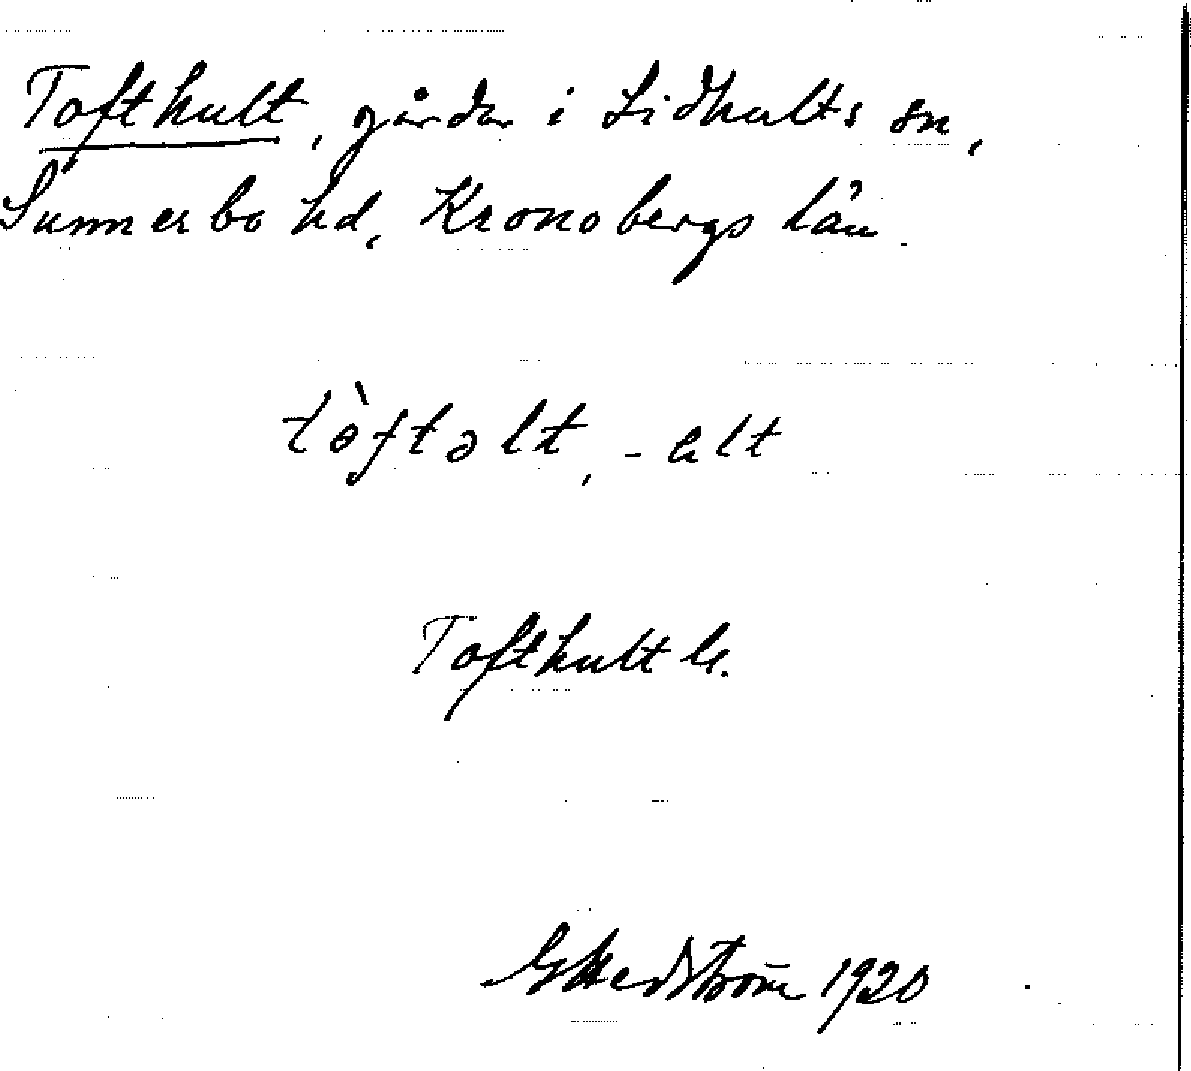 Tofthult, gårdar i Lidhults sn,
Sunnerbo hd, Kronobergs län.
tòftəlt, -alt
Tofthult
G Hedström 1920